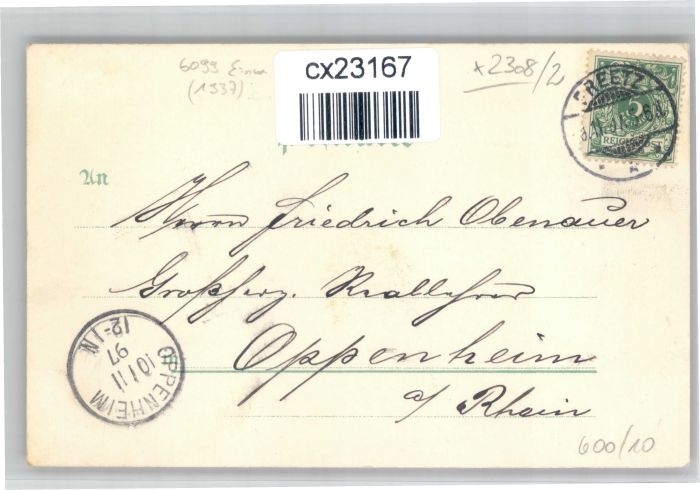 6099
(1937)
cx23167
x2308/2
PREETZ
5
REICHSPOST
An
Herrn Friedrich Obenauer
Großherzg. Reallehrer
Oppenheim
a/ Rhein
OPPENHEIM
10 11
97
12-1N
600/10